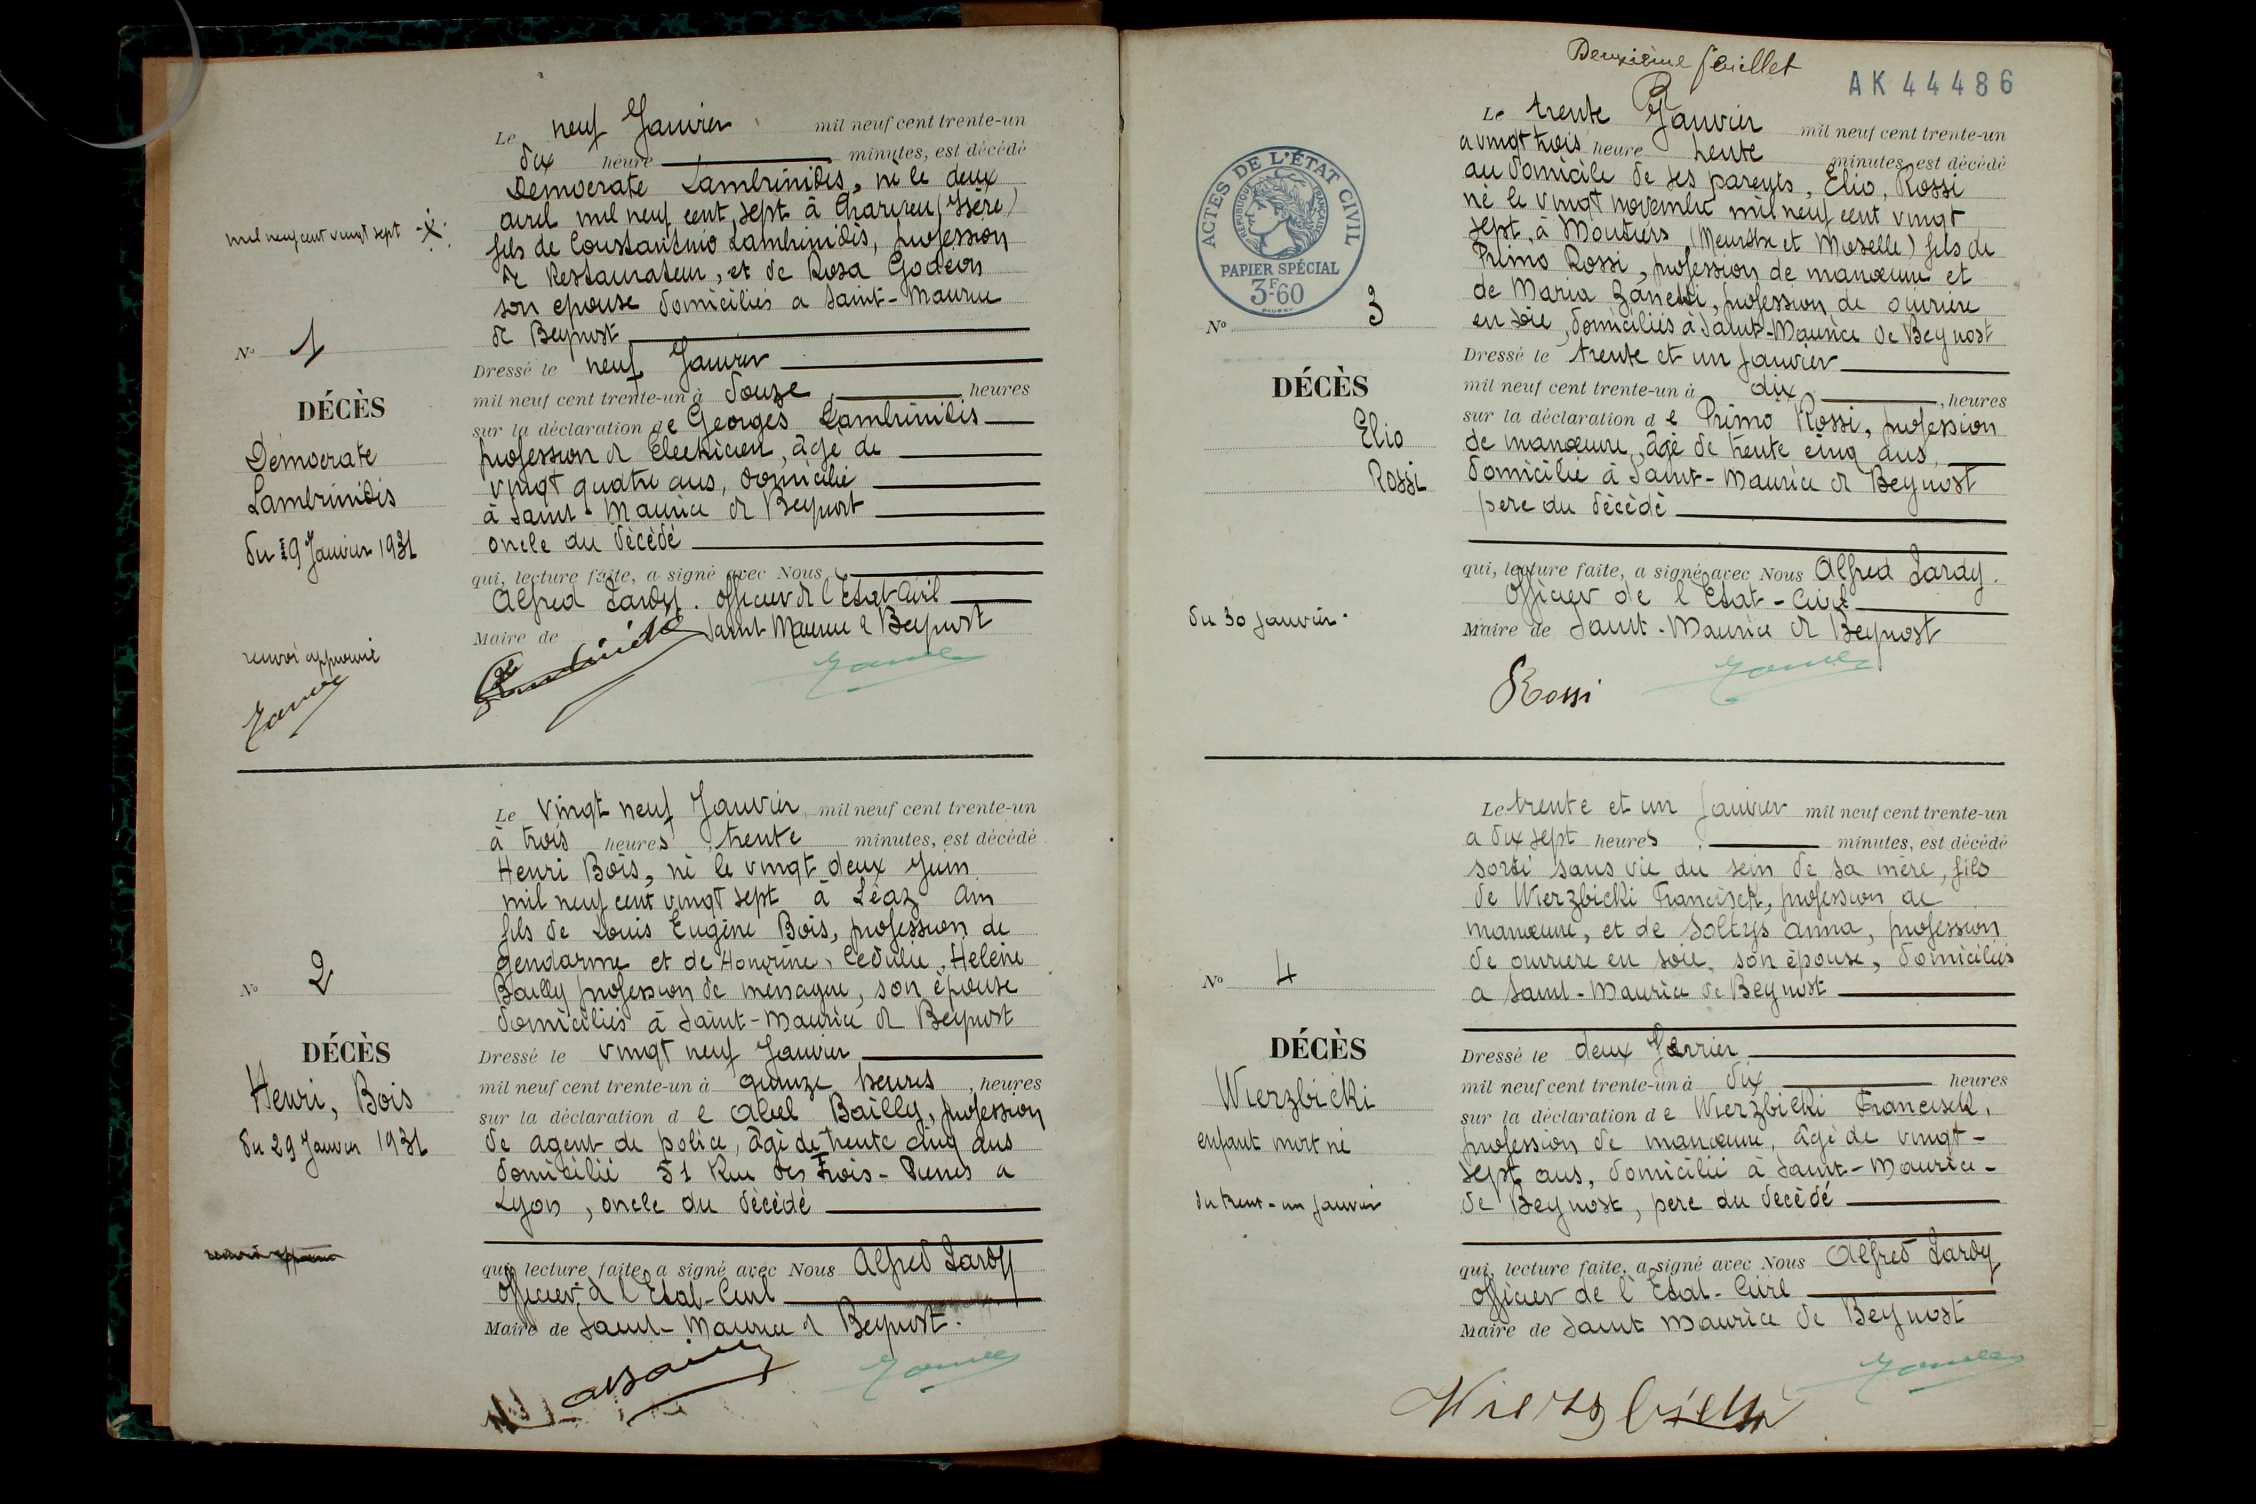 mil neuf cent vingt sept
N° 1
DÉCÈS
Démocrate
Lambrinidis
du 9 Janvier 1931
renvoi approuvé
Le neuf Janvier mil neuf cent trente-un
dix heure minutes, est décédé
Démocrate Lambrinidis, né le deux
avril mil neuf cent, sept à Charvieu (Isère)
fils de Constantinio Lambrinidis, profession
de Restaurateur, et de Rosa Godeon
son epouse domiciliés a Saint-Maurice
de Beynost
Dressé le neuf Janvier
mil neuf cent trente-un à douze heures
sur la déclaration de Georges Lambrinidis
profession de Electricien, âgé de
vingt quatre ans, domicilié
à Saint-Maurice de Beynost
oncle du décédé
qui, lecture faite, a signé avec Nous
Alfred Lardy. officier de l'Etat Civil
Maire de Saint Maurice de Beynost
N° 2
DÉCÈS
Henri, Bois
du 29 Janvier 1931
Le vingt neuf Janvier mil neuf cent trente-un
à trois heures trente minutes, est décédé
Henri Bois, né le vingt deux Juin
mil neuf cent vingt sept à Léaz Ain
fils de Louis Eugène Bois, profession de
gendarme et de Honorine, Cedulie, Helène
Bailly profession de ménagère, son épouse
domiciliés à Saint-Maurice de Beynost
Dressé le vingt neuf Janvier
mil neuf cent trente-un à quinze heures, heures
sur la déclaration de Abel Bailly, profession
de agent de police, âgé de trente cinq ans
domicilié 51 Rue des Trois-Pierres a
Lyon, oncle du décédé
qui, lecture faite, a signé avec Nous Alfred Lardy
officier de l'Etat-Civil
Maire de Saint-Maurice de Beynost.
Deuxième feuillet
AK44486
ACTES DE L'ÉTAT CIVIL
RÉPUBLIQUE FRANÇAISE
PAPIER SPÉCIAL
3F60
N° 3
DÉCÈS
Elio
Rossi
du 30 Janvier.
Le trente Janvier mil neuf cent trente-un
a vingt trois heure trente minutes, est décédé
au domicile de ses parents, Elio, Rossi
né le vingt novembre mil neuf cent vingt
sept, à Moutiers, (Meurthe et Moselle) fils de
Primo Rossi, profession de manœuvre et
de Maria Zanetti, profession de ouvrière
en soie, domiciliés à Saint-Maurice de Beynost
Dressé le trente et un Janvier
mil neuf cent trente-un à dix, heures
sur la déclaration de Primo Rossi, profession
de manœuvre, âgé de trente cinq ans,
domicilié à Saint-Maurice de Beynost
père du décédé
qui, lecture faite, a signé avec Nous Alfred Lardy.
Officier de l'Etat-Civil
Maire de Saint-Maurice de Beynost
Rossi
N° 4
DÉCÈS
Wierzbicki
enfant mort né
du trent-un Janvier
Le trente et un Janvier mil neuf cent trente-un
a dix sept heures minutes, est décédé
sorti sans vie du sein de sa mère, fils
de Wierzbicki Franciseck, profession de
manœuvre, et de Soltys Anna, profession
de ouvriere en soie, son épouse, domiciliés
a Saint-Maurice de Beynost
Dressé le deux Fevrier
mil neuf cent trente-un à dix heures
sur la déclaration de Wierzbicki Franciseck,
profession de manœuvre, âgé de vingt-
sept ans, domicilié à Saint-Maurice-
de Beynost, père du décédé
qui, lecture faite, a signé avec Nous Alfred Lardy
officier de l'Etat-Civil
Maire de Saint Maurice de Beynost
Wierzbicki